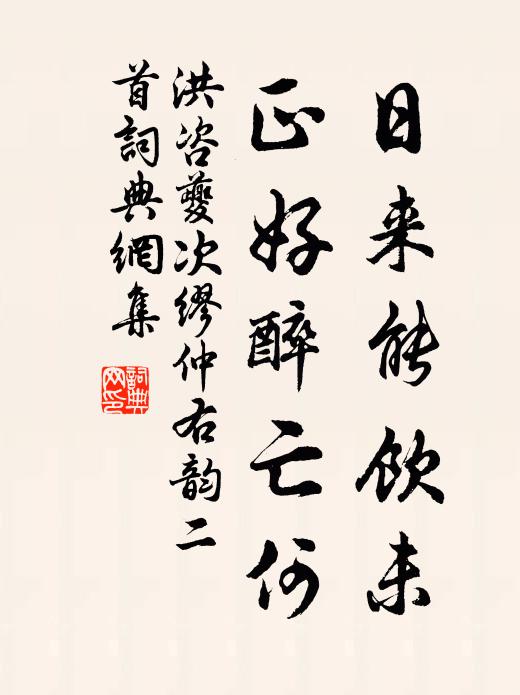 日来能饮未
正好醉亡何
洪咨夔次缪仲右韵二
首詞典網集
詞典
网印